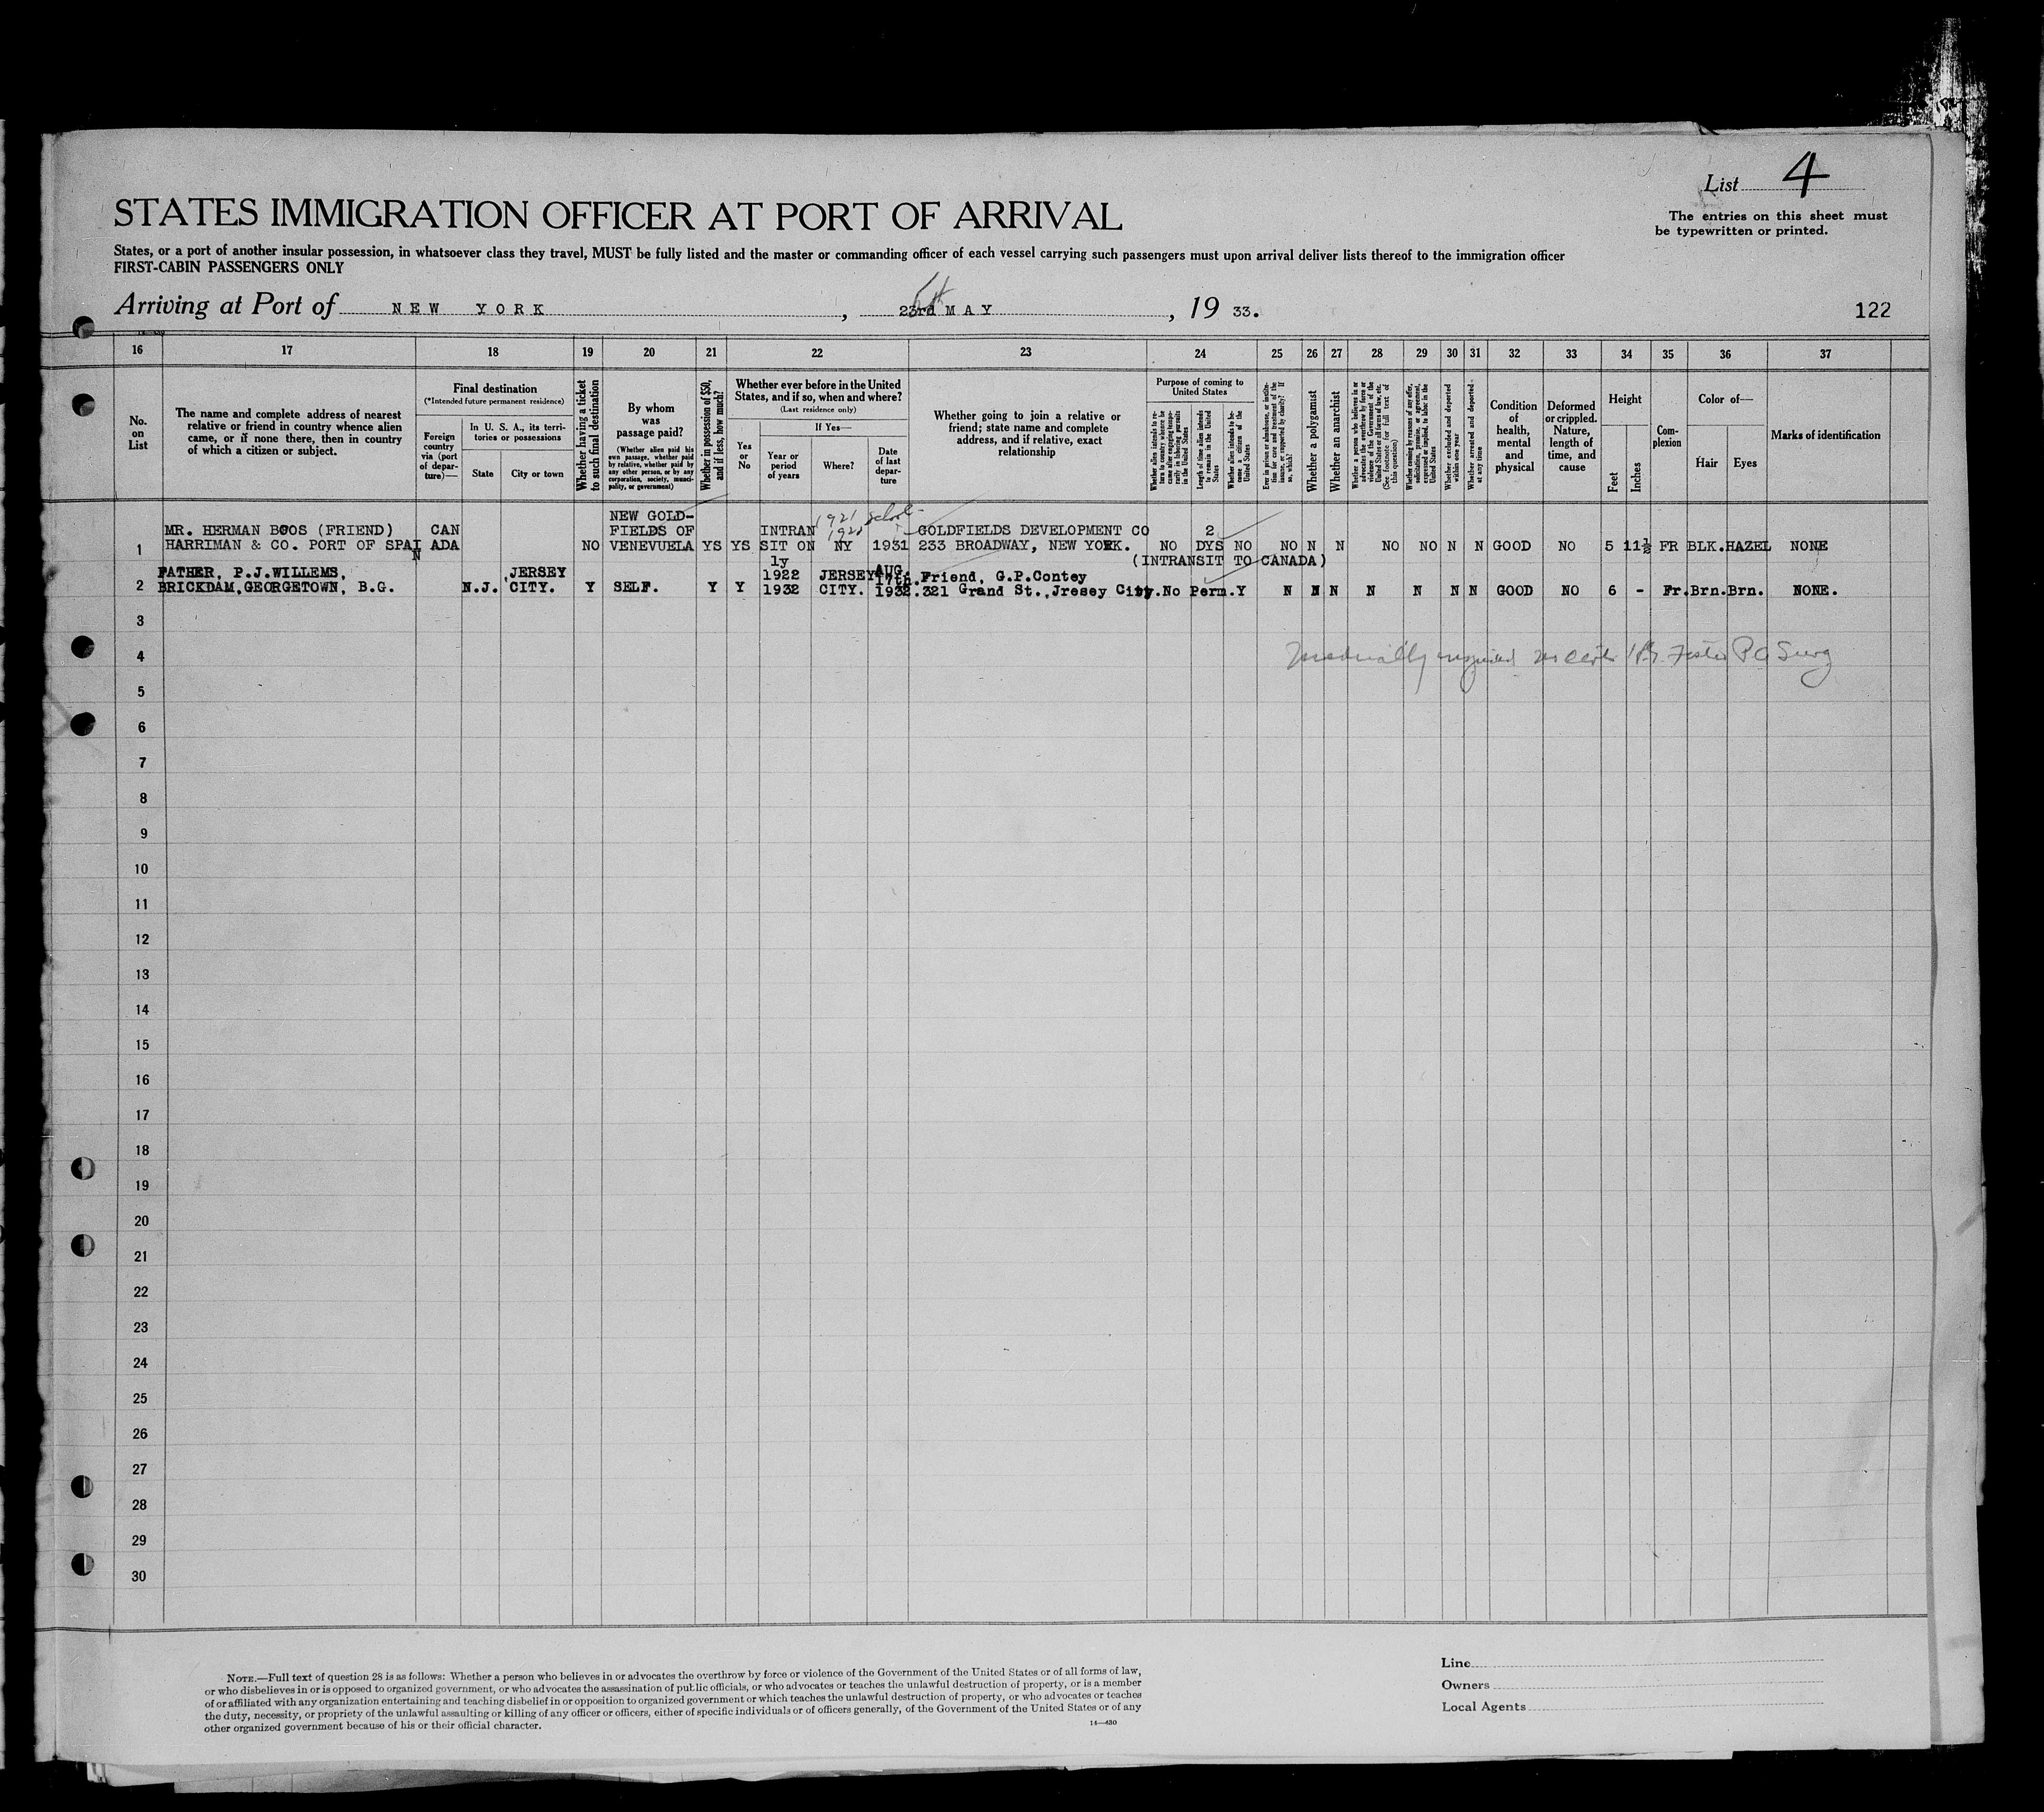 List 4
The entries on this sheet must
be typewritten or printed.
STATES IMMIGRATION OFFICER AT PORT OF ARRIVAL
States, or a port of another insular possession, in whatsoever class they travel, MUST be fully listed and the master or commanding officer of each vessel carrying such passengers must upon arrival deliver lists thereof to the immigration officer
FIRST-CABIN PASSENGERS ONLY
Arriving at Port of NEW YORK, 23rd MAY, 19 33.
122
16 17 18 19 20 21 22 23 24 25 26 27 28 29 30 31 32 33 34 35 36 37
No. on List
The name and complete address of nearest
relative or friend in country whence alien
came, or if none there, then in country
of which a citizen or subject.
Final destination
(*Intended future permanent residence)
Foreign country via (port of departure)—
In U. S. A., its territories or possessions
State
City or town
Whether having a ticket to such final destination
By whom was passage paid?
(Whether alien paid his own passage, whether paid by relative, whether paid by any other person, or by any corporation, society, municipality, or government)
Whether in possession of $50, and if less, how much?
Whether ever before in the United
States, and if so, when and where?
(Last residence only)
Yes or No
If Yes—
Year or period of years
Where?
Date of last departure
Whether going to join a relative or
friend; state name and complete
address, and if relative, exact
relationship
Purpose of coming to
United States
Whether alien intends to return to country whence he came after engaging temporarily in laboring pursuits in the United States
Length of time alien intends to remain in the United States
Whether alien intends to become a citizen of the United States
Ever in prison or almshouse, or institution for care and treatment of the insane, or supported by charity? If so, which?
Whether a polygamist
Whether an anarchist
Whether a person who believes in or advocates the overthrow by force or violence of the Government of the United States or all forms of law, etc. (See footnote for full text of this question)
Whether coming by reasons of any offer, solicitation, promise, or agreement, expressed or implied, to labor in the United States
Whether excluded and deported within one year
Whether arrested and deported at any time
Condition of health, mental and physical
Deformed or crippled. Nature, length of time, and cause
Height
Feet
Inches
Complexion
Color of—
Hair
Eyes
Marks of identification
1921 school
1920
1 MR. HERMAN BOOS (FRIEND) HARRIMAN & CO. PORT OF SPAIN CAN ADA NO NEW GOLD- FIELDS OF VENEVUELA YS YS INTRAN SIT ON ly NY 1931 GOLDFIELDS DEVELOPMENT CO 233 BROADWAY, NEW YORK. NO 2 DYS NO NO N N NO NO N N GOOD NO 5 11½ FR BLK. HAZEL NONE
(INTRANSIT TO CANADA)
2 FATHER, P.J.WILLEMS, BRICKDAM, GEORGETOWN, B.G. N.J. JERSEY CITY. Y SELF. Y Y 1922 1932 JERSEY CITY. AUG. 17th. 1932. Friend, G.P.Contey 321 Grand St., Jresey City. No Perm. Y N N N N N N N GOOD NO 6 - Fr. Brn. Brn. NONE.
3
4
5
6
7
8
9
10
11
12
13
14
15
16
17
18
19
20
21
22
23
24
25
26
27
28
29
30
NOTE.—Full text of question 28 is as follows: Whether a person who believes in or advocates the overthrow by force or violence of the Government of the United States or of all forms of law,
or who disbelieves in or is opposed to organized government, or who advocates the assassination of public officials, or who advocates or teaches the unlawful destruction of property, or is a member
of or affiliated with any organization entertaining and teaching disbelief in or opposition to organized government or which teaches the unlawful destruction of property, or who advocates or teaches
the duty, necessity, or propriety of the unlawful assaulting or killing of any officer or officers, either of specific individuals or of officers generally, of the Government of the United States or of any
other organized government because of his or their official character.
14—430
Line
Owners
Local Agents